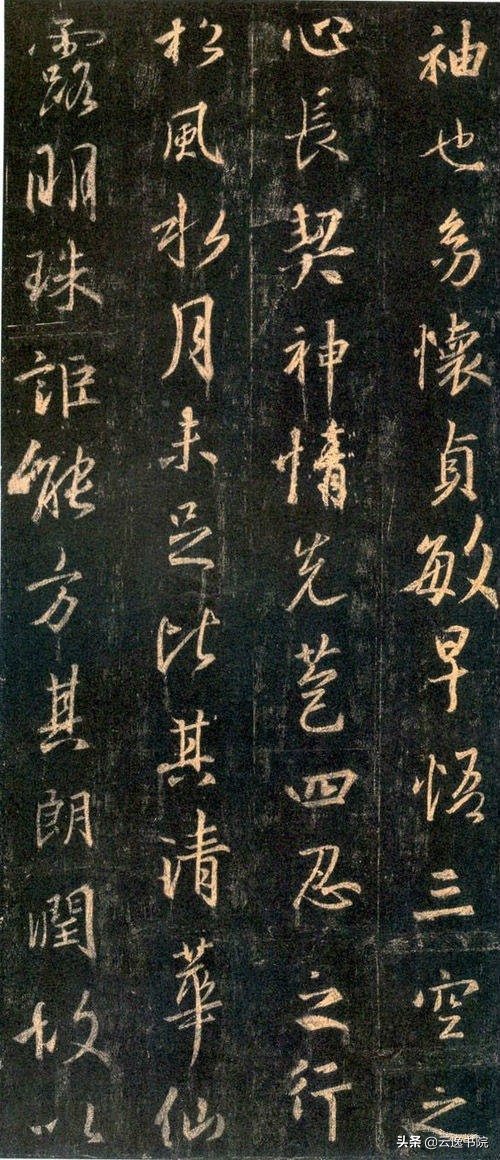 袖也幼懷貞敏早悟三空之
心長契神情先苞四忍之行
松風水月未足比其清華仙
露明珠詎能方其朗潤故以
头条 @云逸书院